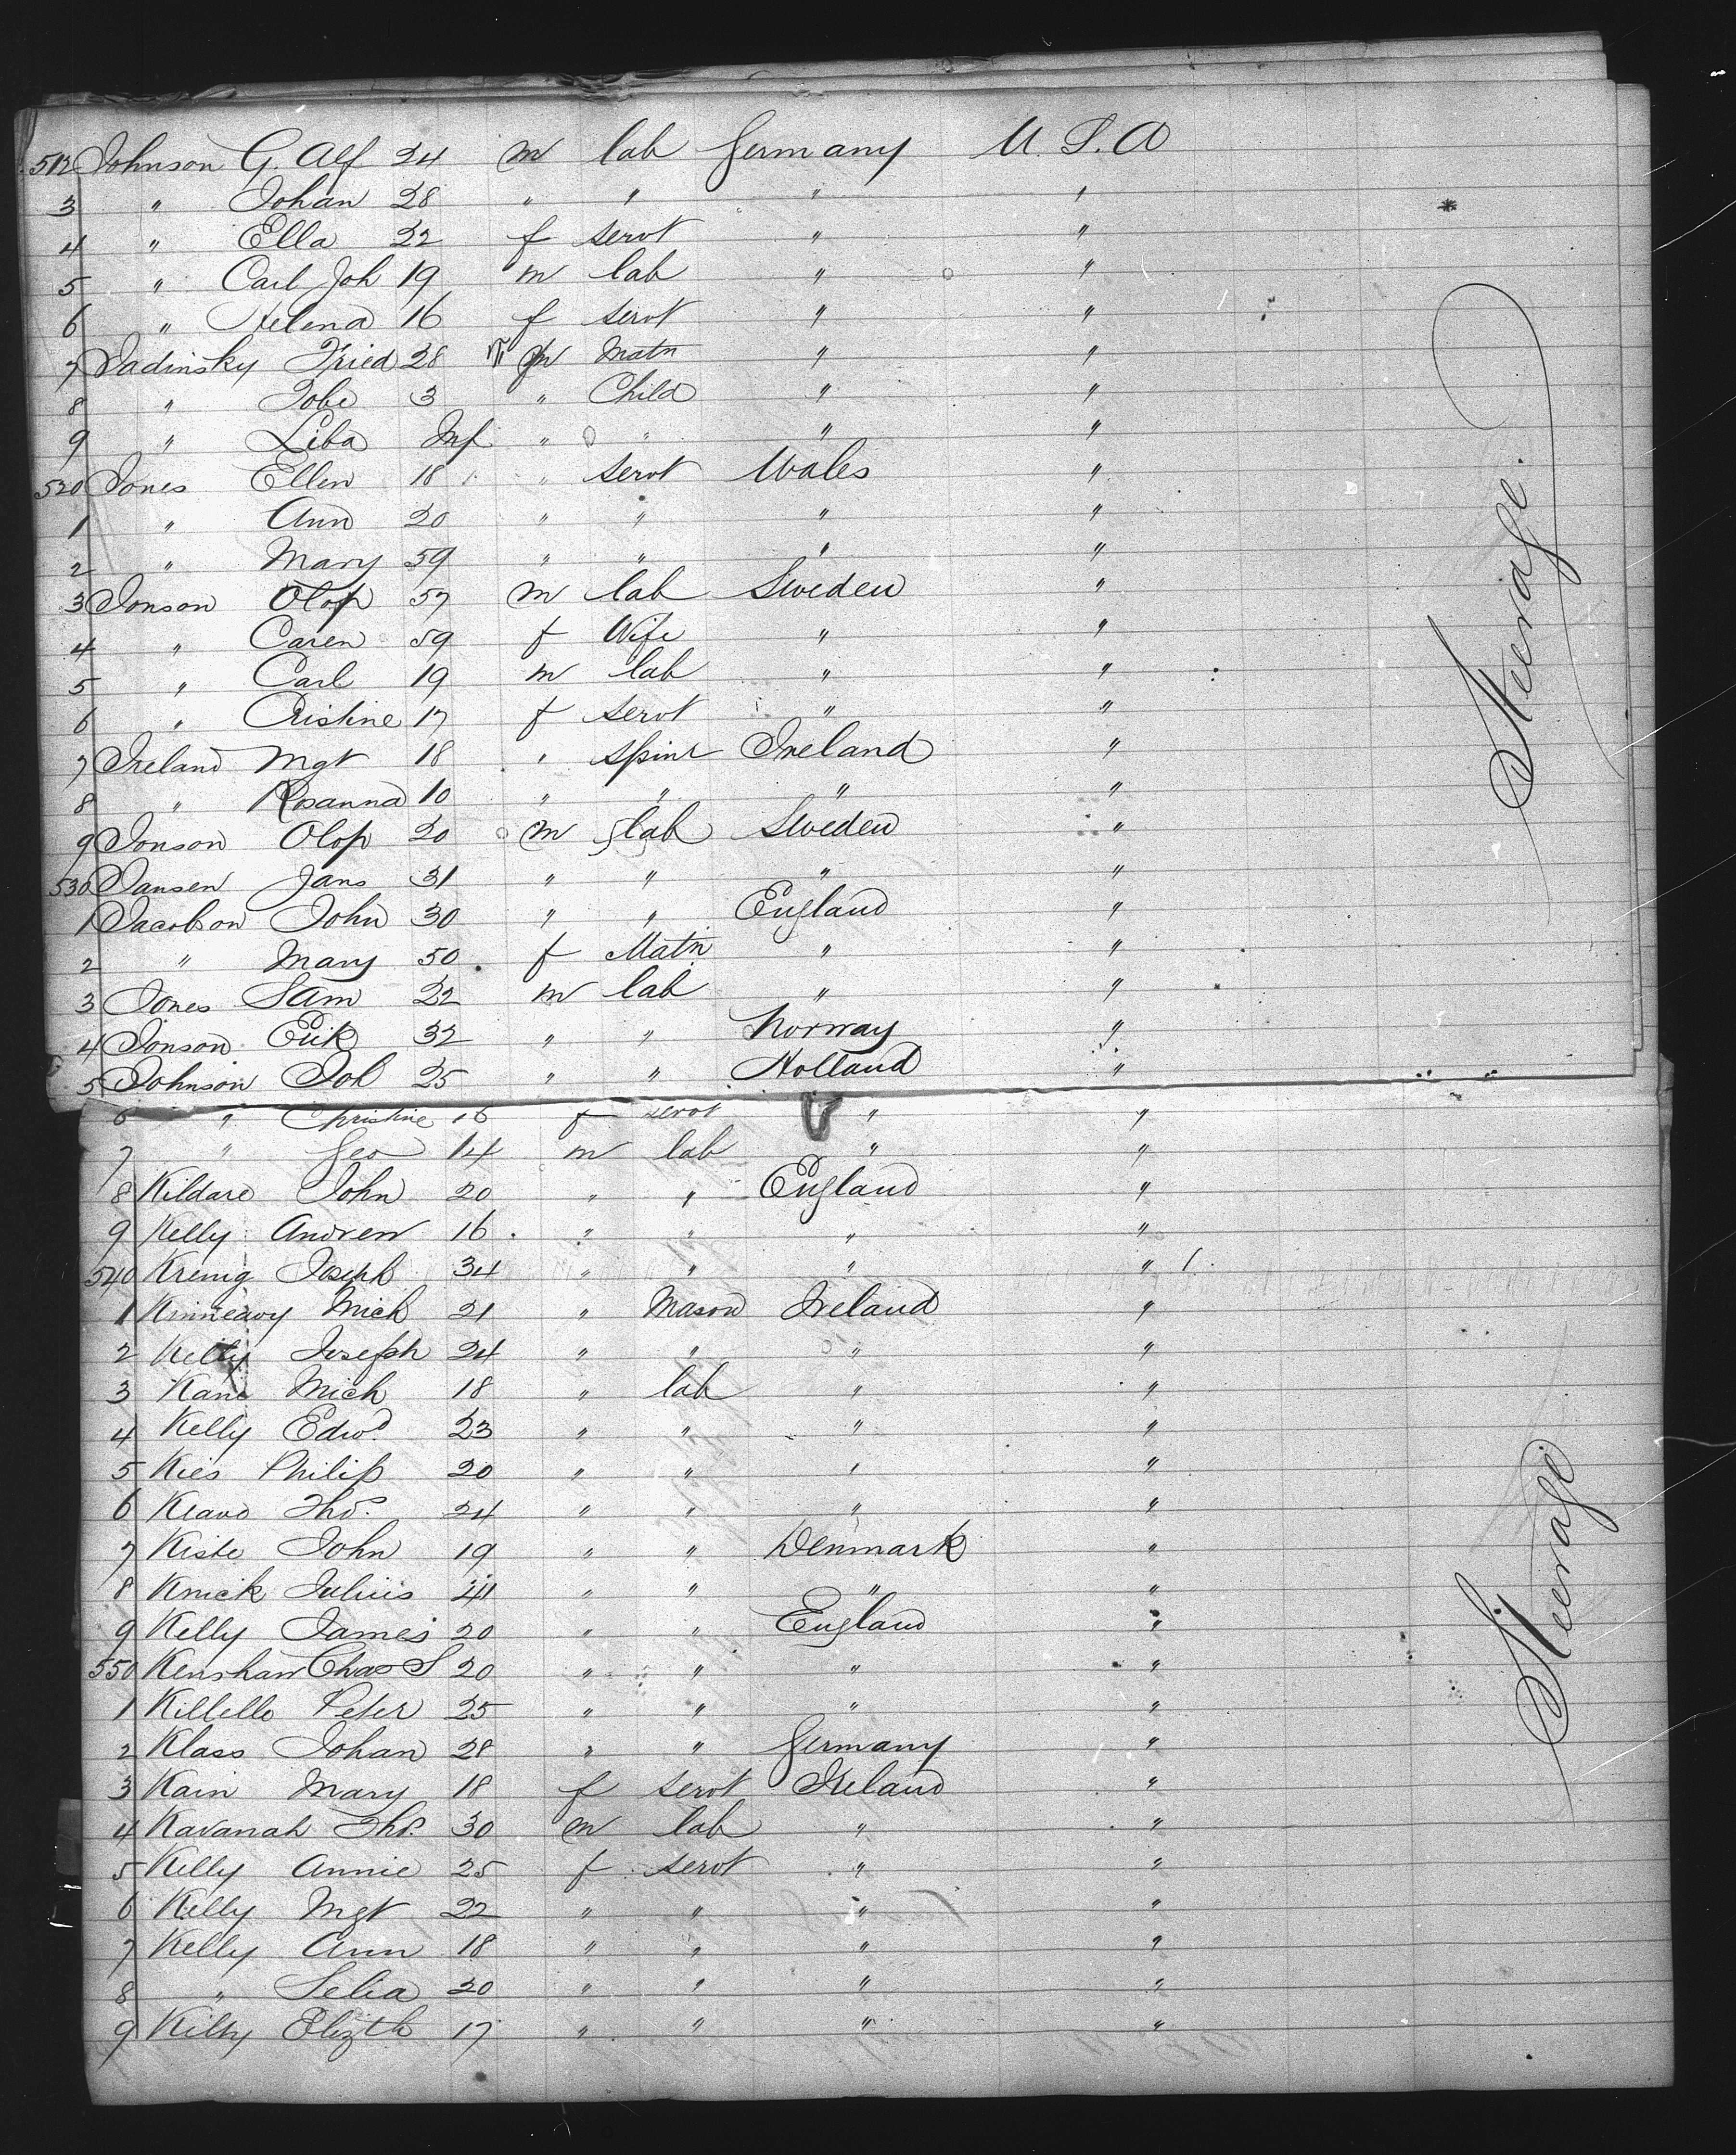 512 Johnson G Alf 24 m lab Germany U.S.A
3 " Johan 28 " " " "
4 " Ella 22 f servt " "
5 " Carl Joh 19 m lab " "
6 " Helena 16 f servt " "
7 Jadinsky Fried 28 Matn " "
8 " Tobe 3 " Child " "
9 " Liba Inf " " " "
520 Jones Ellen 18 " servt Wales "
1 " Ann 20 " " " "
2 " Mary 59 " " " "
3 Jonson Olof 57 m lab Sweden "
4 " Caren 59 f Wife " "
5 " Carl 19 m lab " "
6 " Cristine 17 f servt " "
7 Ireland Mgt 18 " spinr Ireland "
8 " Rosanna 10 " " " "
9 Jonson Olop 20 m lab Sweden "
530 Jansen Jans 31 " " " "
1 Jacobson John 30 " " England "
2 " Mary 50 f Matn " "
3 Jones Sam 22 m lab " "
4 Jonson Erik 32 " " Norway "
5 Johnson Joh 25 " " Holland "
6 " Christine 16 f servt " "
7 " Geo 14 m lab " "
8 Kildare John 20 " " England "
9 Kelly Andrew 16 " " " "
540 Krenig Joseph 34 " " " "
1 Kinneavy Mich 21 " Mason Ireland "
2 Kelty Joseph 24 " " " "
3 Kane Mich 18 " lab " "
4 Kelly Edwd 23 " " " "
5 Kies Philip 20 " " " "
6 Keavo Thos 24 " " " "
7 Kiste John 19 " " Denmark "
8 Knick Julius 41 " " " "
9 Kelly James 20 " " England "
550 Kenshaw Chas S 20 " " " "
1 Killello Peter 25 " " " "
2 Klass Johan 28 " " Germany "
3 Kain Mary 18 f servt Ireland "
4 Kavanah Thos. 30 m lab " "
5 Kelly Annie 25 f servt " "
6 Kelly Mgt 22 " " " "
7 Kelly Ann 18 " " " "
8 " Selia 20 " " " "
9 Kilty Elizth 17 " " " "
Steerage.
Steerage